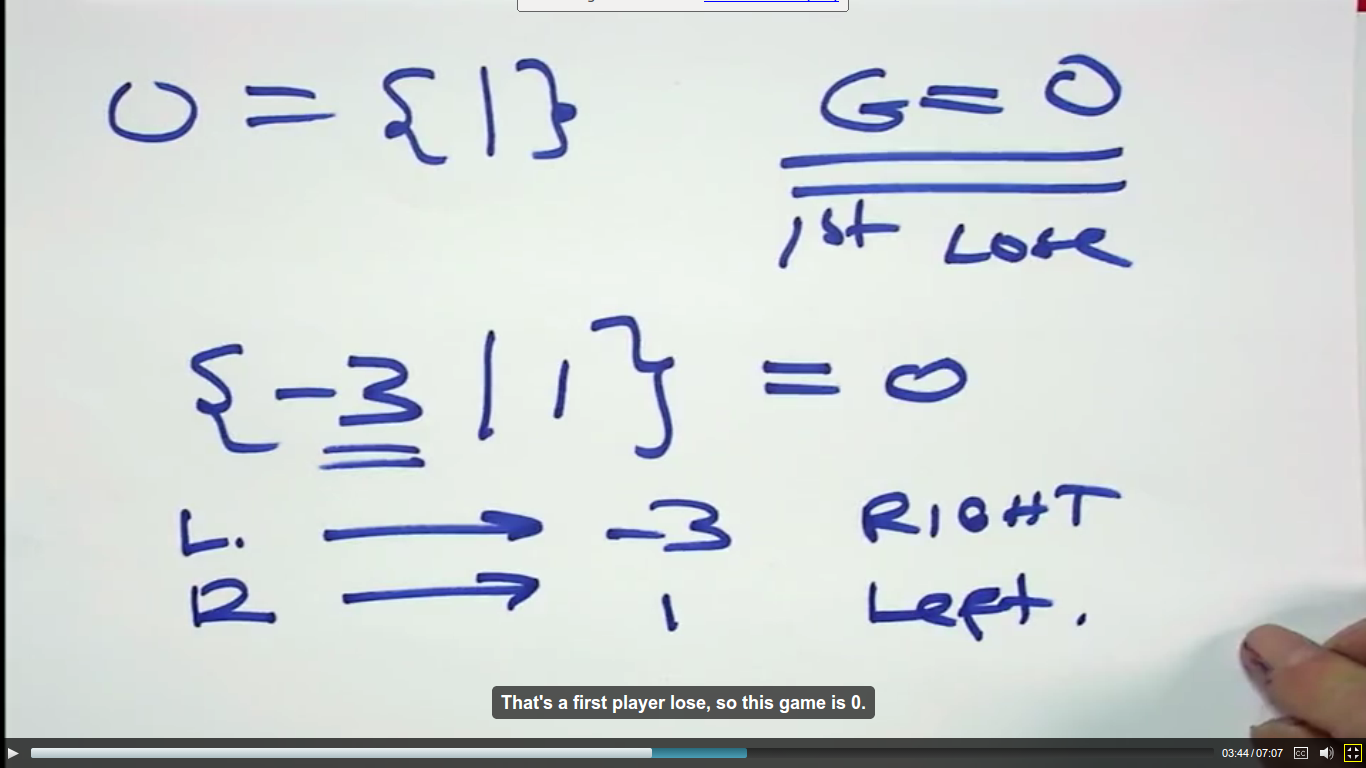 0 = { | }
G = 0
1st Lose
{ -3 | 1 } = 0
L. → -3 RIGHT
R → 1 Left.
That's a first player lose, so this game is 0.
03:44/07:07
CC